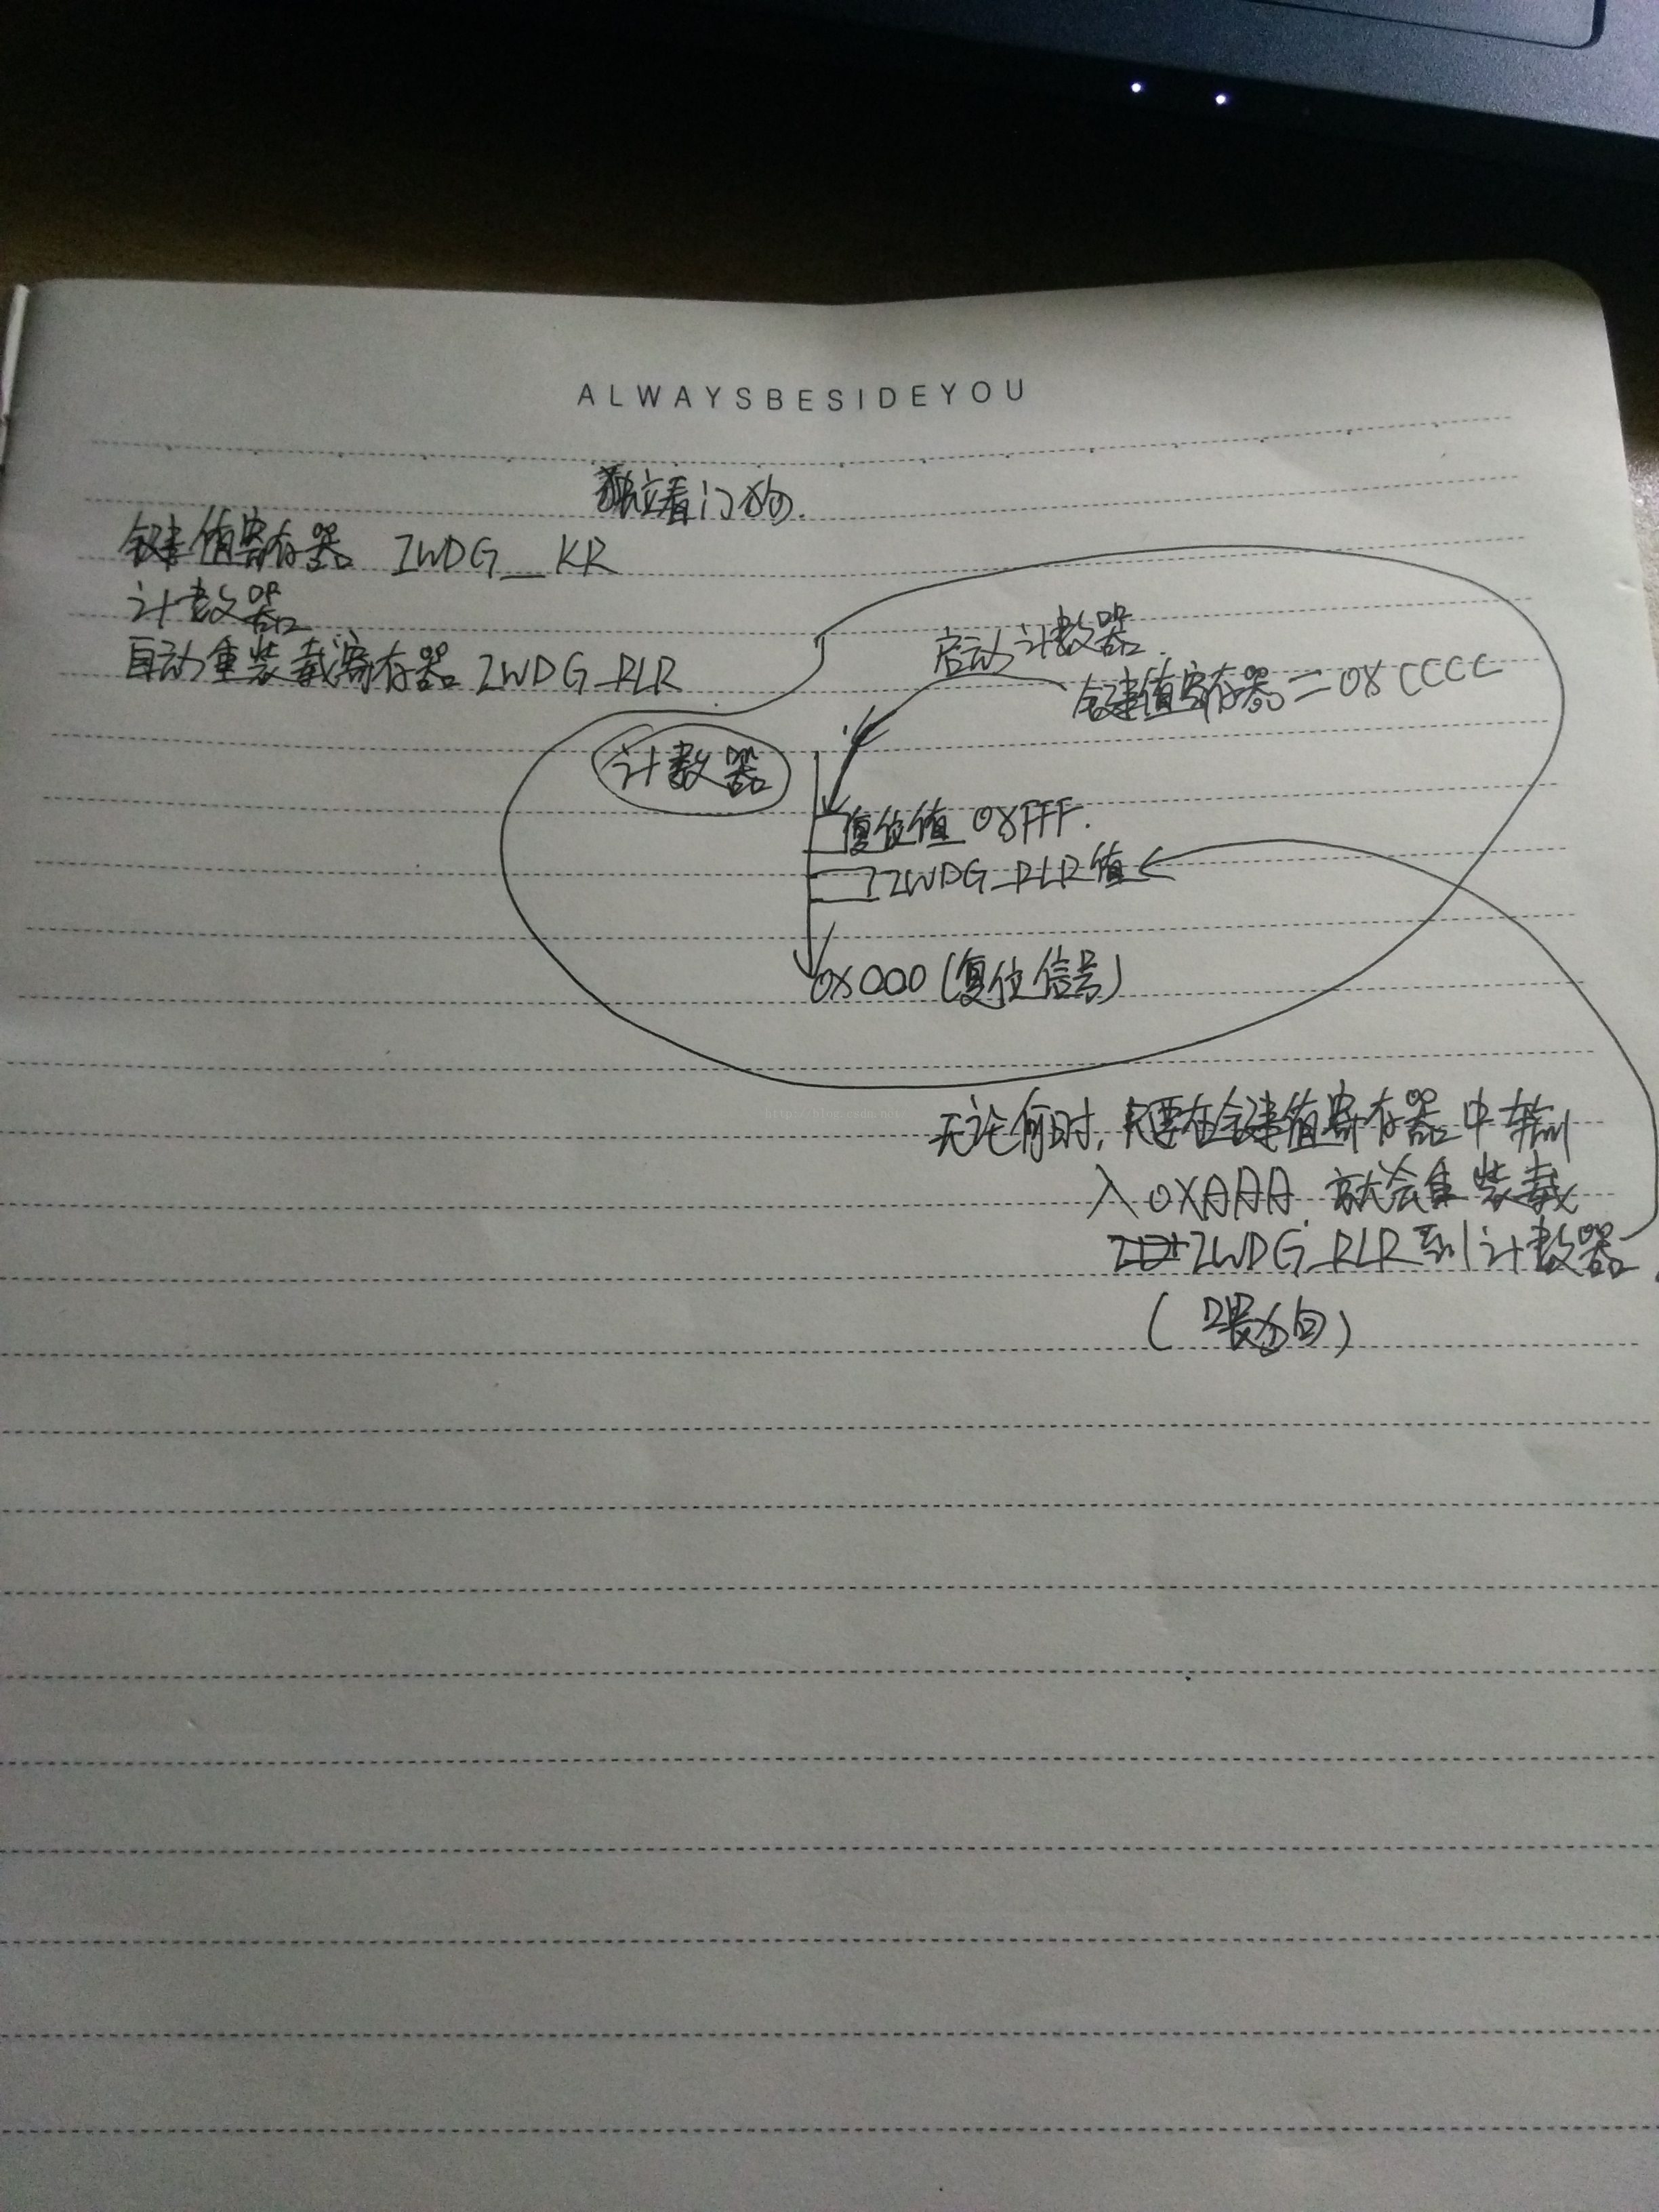 ALWAYSBESIDEYOU
独立看门狗.
键值寄存器 IWDG_KR
计数器
自动重装载寄存器 IWDG_RLR
启动计数器.
键值寄存器=0XCCCC
计数器
复位值 0XFFF.
IWDG_RLR值
0X000(复位信号)
http://blog.csdn.net/
无论何时,只要在键值寄存器中输
入0XAAA.就会重装载
IWDG_RLR到计数器.
(喂狗)